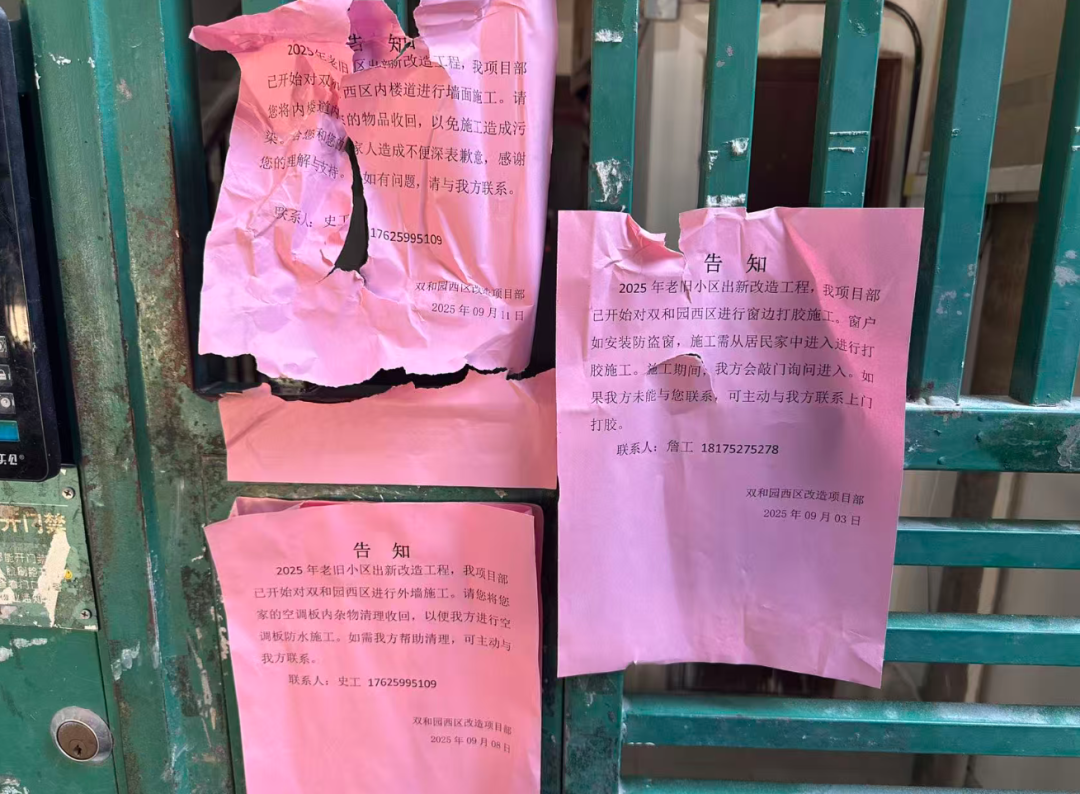 告 知
2025年老旧 区出新改造工程，我项目部
已开始对双 西区内楼道进行墙面施工。请
您将内楼道内 的物品收回，以免施工造成污
染。给您和您 家人造成不便深表歉意，感谢
您的理解与支持。如有问题，请与我方联系。
联系人：史工 17625995109
双和园西区改造项目部
2025年09月11日
告 知
2025年老旧小区出新改造工程，我项目部
已开始对双和园西区进行窗边打胶施工。窗户
如安装防盗窗，施工需从居民家中进入进行打
胶施工。施工期间，我方会敲门询问进入。如
果我方未能与您联系，可主动与我方联系上门
打胶。
联系人：詹工 18175275278
双和园西区改造项目部
2025年09月03日
告 知
2025年老旧小区出新改造工程，我项目部
已开始对双和园西区进行外墙施工。请您将您
家的空调板内杂物清理收回，以便我方进行空
调板防水施工。如需我方帮助清理，可主动与
我方联系。
联系人：史工 17625995109
双和园西区改造项目部
2025年09月08日
开门禁